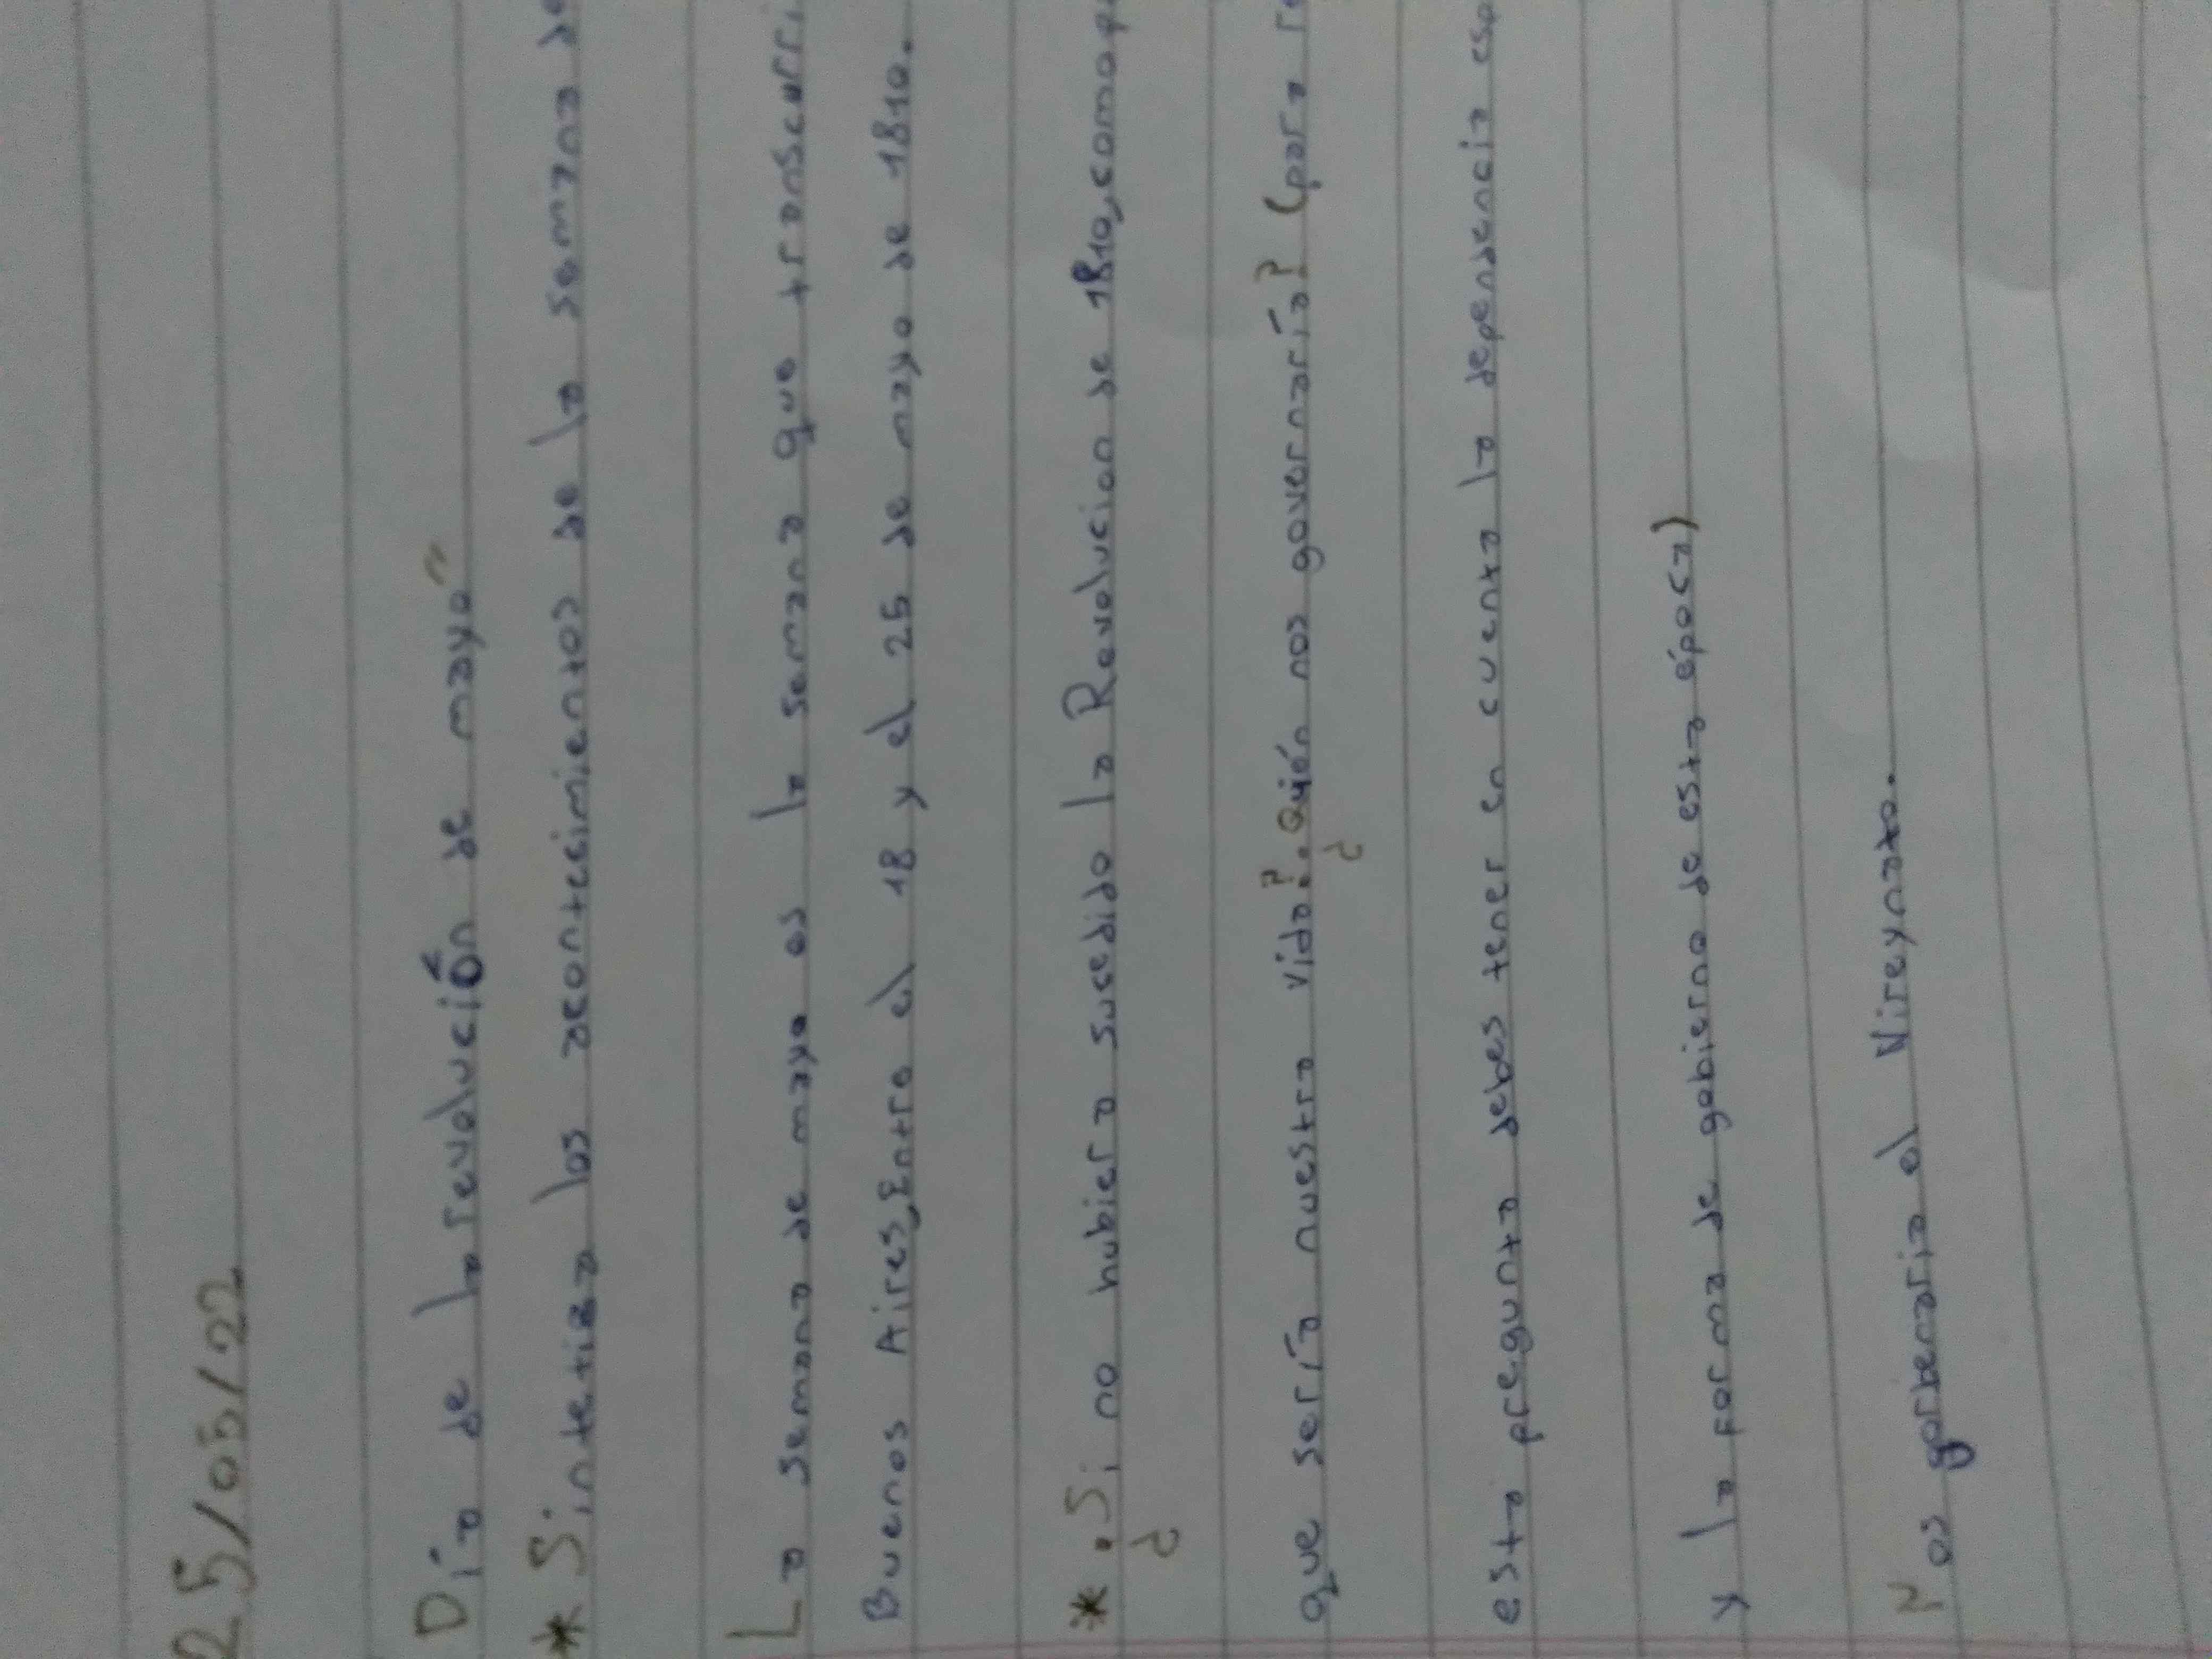 25/05/22
Día de la revolución de mayo"
* Sintetiza los acontecimientos de la semana de
La semana de mayo es la semana que transcurri
Buenos Aires, Entre el 18 y el 25 de mayo de 1810.
* ¿Si no hubiera sucedido la Revolucion de 1810, como p
que sería nuestra vida?. ¿Quién nos governaría? (para re
esta pregunta debes tener en cuenta la dependencia esp
y la forma de gobierno de esta época)
Nos gorbenaria el Vireynato.